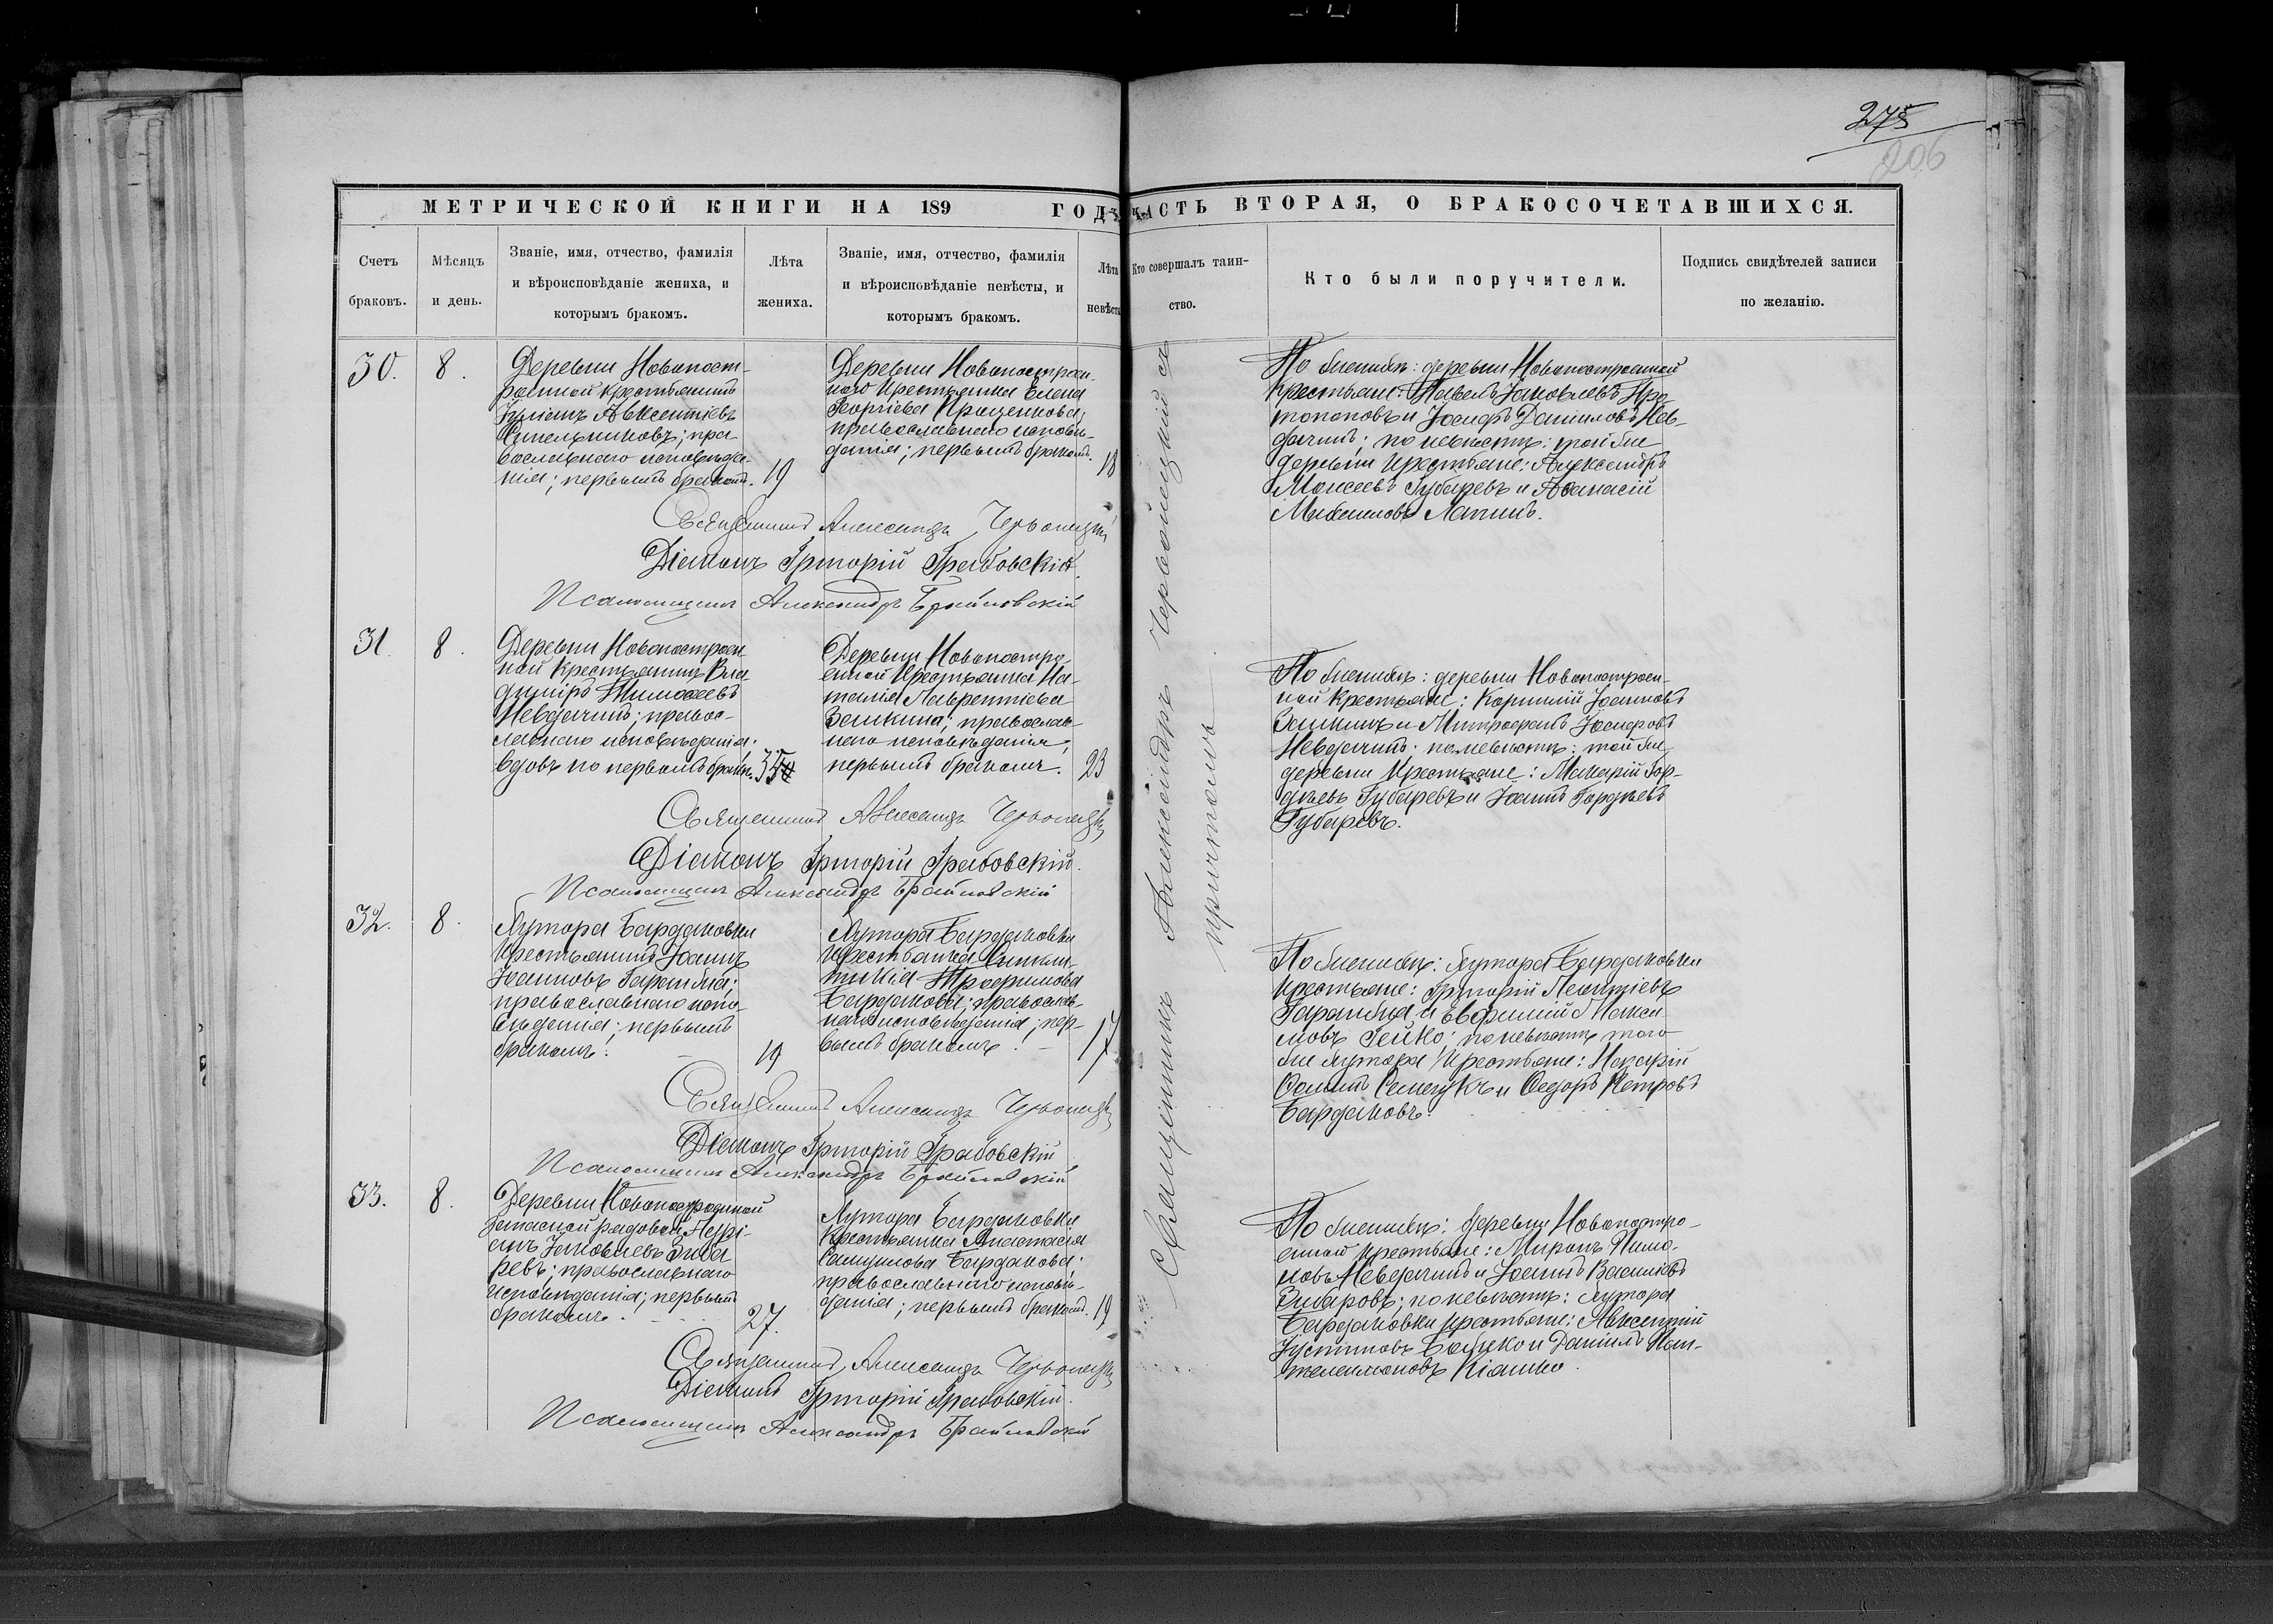 275
206
МЕТРИЧЕСКОЙ КНИГИ НА 189 ГОДЪ, ЧАСТЬ ВТОРАЯ, О БРАКОСОЧЕТАВШИХСЯ.
Счетъ браковъ.
Мѣсяцъ и день.
Званіе, имя, отчество, фамилія
и вѣроисповѣданіе жениха, и
которымъ бракомъ.
Лѣта жениха.
Званіе, имя, отчество, фамилія
и вѣроисповѣданіе невѣсты, и
которымъ бракомъ.
Лѣта невѣсты
Кто совершалъ таин-
ство.
Кто были поручители.
Подпись свидѣтелей записи
по желанію.
30.
8.
Деревни Новопост-
роенной крестьянинъ
Іуліанъ Авксентіевъ
православнаго исповѣда
нія; первымъ бракомъ.
19
Деревни Новопостроен-
ной крестьянка Елена
Георгіева Гриценкова;
православнаго исповѣ-
данія; первымъ бракомъ.
18
По женихѣ: деревни Новопостроенной
крестьяне: Павелъ Іаковлевъ Про
топоповъ и Іосифъ Даніиловъ Нев-
дачинъ; по невѣстѣ: той же
деревни крестьяне: Александръ
Моисеевъ Губаревъ и Аѳанасій
Михаиловъ Лапинъ.
Священникъ Александръ Червонецкій
Діаконъ Григорій Грабовскій.
Псаломщикъ Александръ Брайловскій
31.
8.
Деревни Новопостроен
ной крестьянинъ Вла
диміръ Тимоѳеевъ
Невдачинъ; правос-
лавнаго исповѣданія;
вдовъ по первомъ бракѣ.
35
Деревни Новопостро
енной крестьянка На-
талія Лаврентіева
Заикина; православ-
наго исповѣданія;
первымъ бракомъ.
23
По женихѣ: деревни Новопостроен-
ной крестьяне: Корнилій Іоанновъ
Заикинъ и Митрофанъ Іосифовъ
Невдачинъ; по невѣстѣ: той же
деревни крестьяне: Макарій Гор-
дѣевъ Губаревъ и Іоаннъ Гордѣевъ
Губаревъ.
Священникъ Александръ Червонецкій
Діаконъ Григорій Грабовскій.
Псаломщикъ Александръ Брайловскій
32.
8.
Хутора Бардаковки
крестьянинъ Іоаннъ
Іоанновъ Гарагпя;
православнаго испо-
вѣданія; первымъ
бракомъ.
19
Хутора Бардаковки
крестьянка
Трофимова
Бардакова; православ-
наго исповѣданія; пер-
вымъ бракомъ.
17
По женихѣ: хутора Бардаковки
крестьяне: Григорій Леонтіевъ
и Евфимій Макси
мовъ Гейко; по невѣстѣ того
же хутора крестьяне: Макарій
Ѳоминъ и Ѳедоръ Петровъ
Бардаковъ.
Священникъ Александръ Червонецкій
Діаконъ Григорій Грабовскій
Псаломщикъ Александръ Брайловскій
33.
8.
Деревни Новопостроенной
запасной рядовой
Іаковлевъ Зиба
ревъ; православнаго
исповѣданія; первымъ
бракомъ.
27.
Хутора Бардаковки
крестьянка Анастасія
Самуилова Бардакова;
православнаго исповѣ-
данія; первымъ бракомъ.
19
По женихѣ: деревни Новопостро-
енной крестьяне: Миронъ
Невдачинъ и Іоаннъ Василіевъ
Зибаровъ; по невѣстѣ: хутора
Бардаковки крестьяне: Авксентій
Іустиновъ и Даніилъ Пан-
телеимоновъ Кіашко.
Священникъ Александръ Червонецкій
Діаконъ Григорій Грабовскій.
Псаломщикъ Александръ Брайловскій
Священникъ Александръ Червонецкій съ
причтомъ